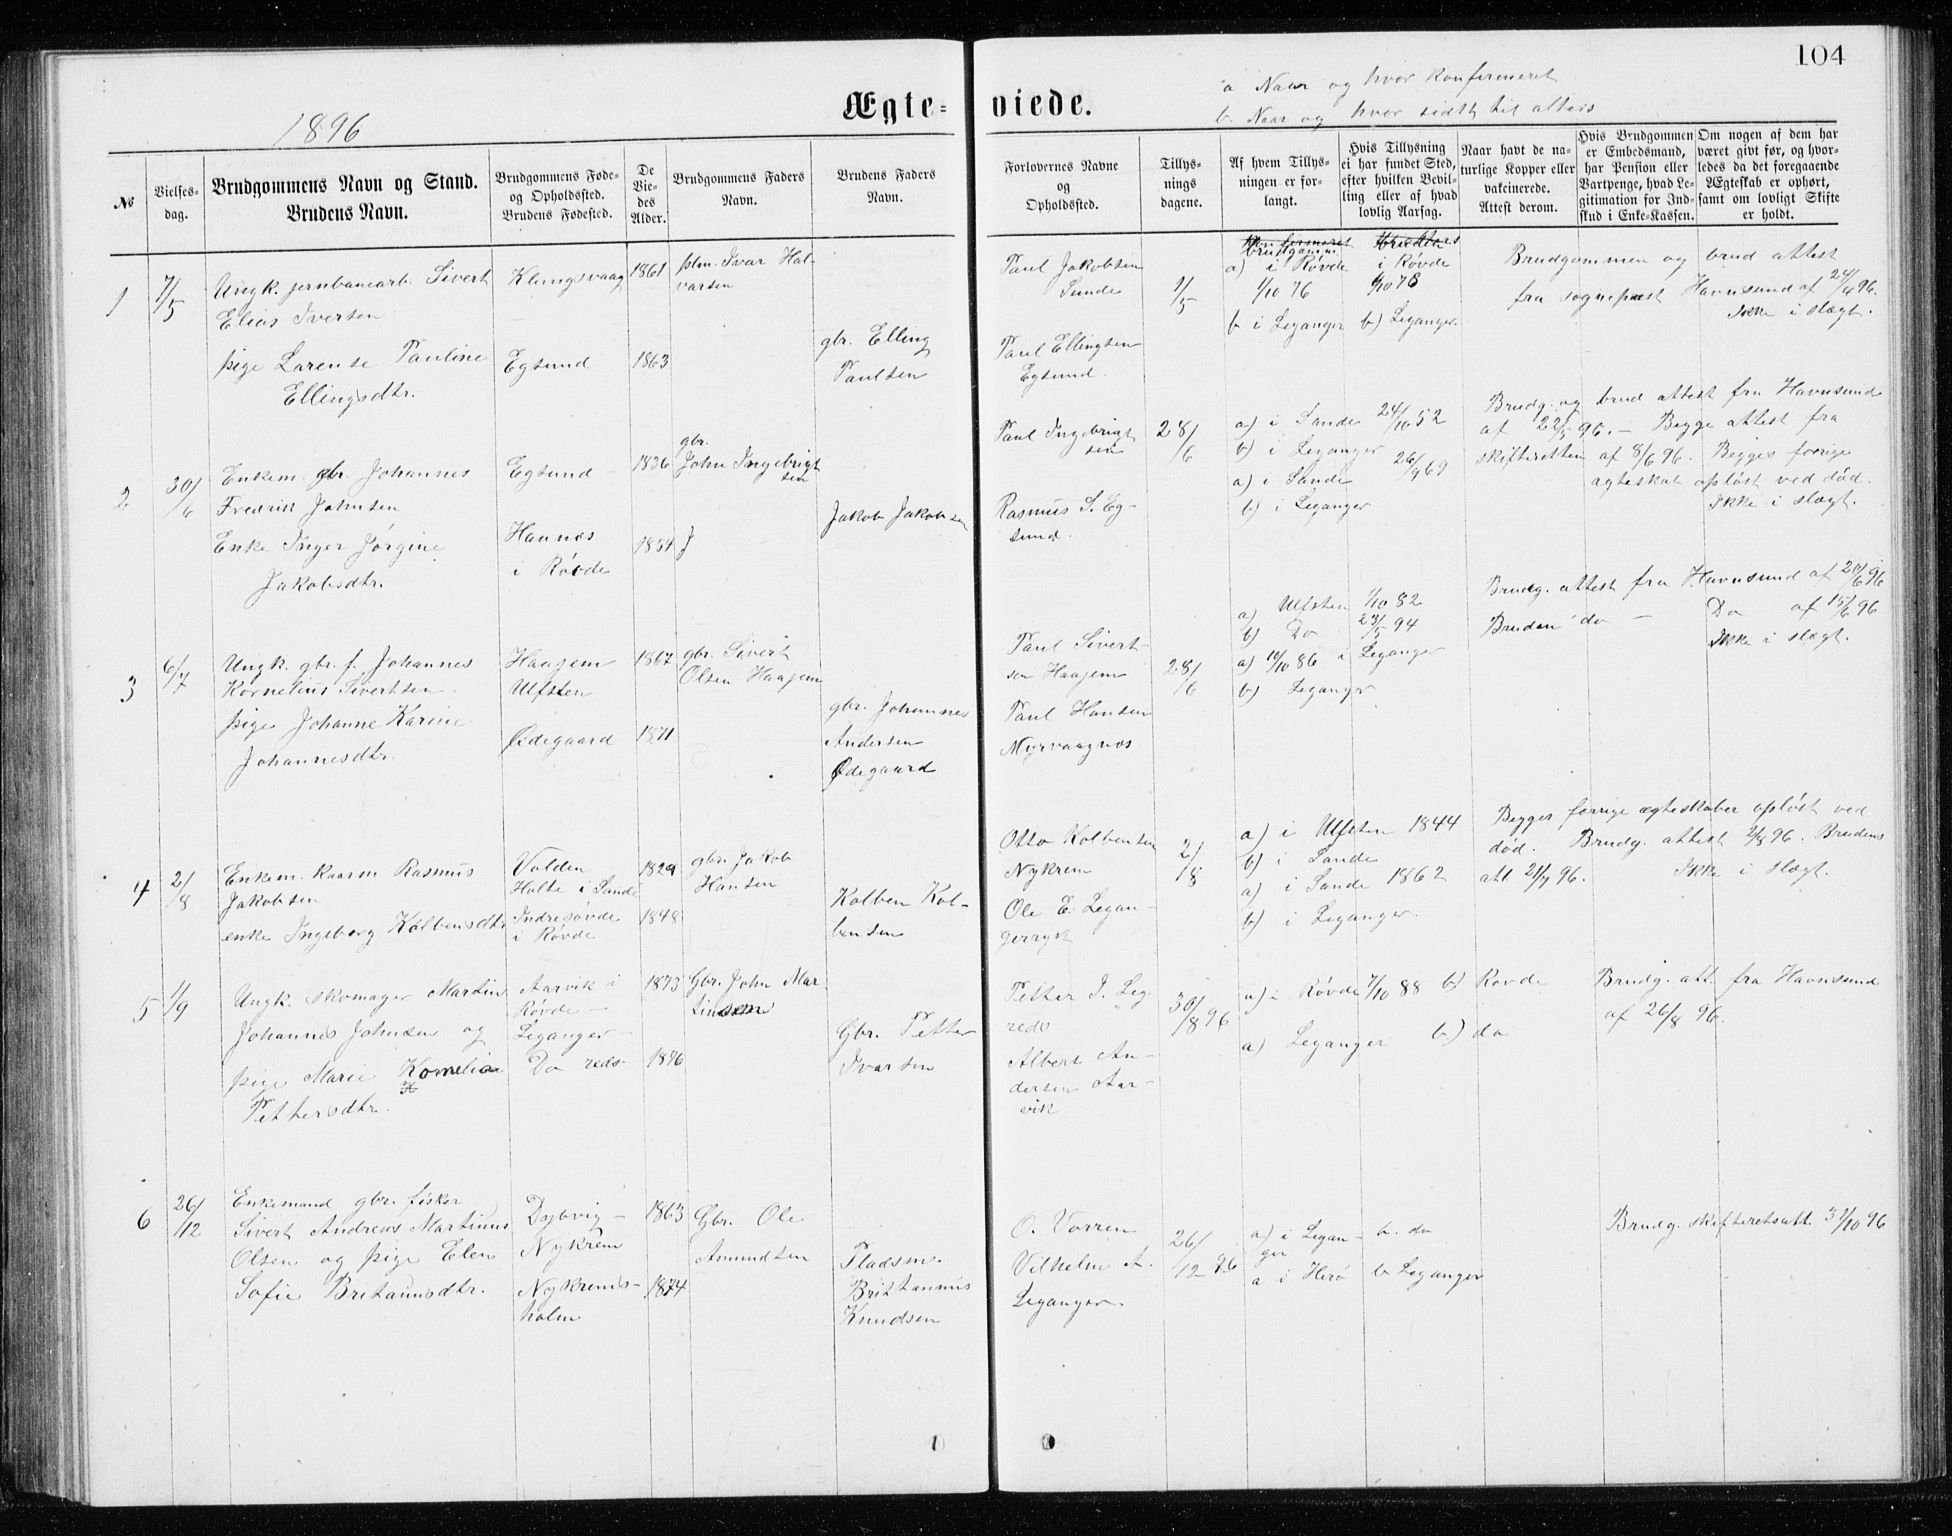 104
Ægteviede.
a Naar og hvor konfirmeret
b. Naar og hvor sidst til alters
1896
№
Vielsesdag.
Brudgommens Navn og Stand.
Brudens Navn.
Brudgommens Føde-
og Opholdssted.
Brudens Fødested.
De
Vie-
des
Alder.
Brudgommens Faders
Navn.
Brudens Faders
Navn.
Forlovernes Navne
og
Opholdssted.
Tillys-
nings
dagene.
Af hvem Tillys-
ningen er for-
langt.
Hvis Tillysning
ei har fundet Sted,
efter hvilken Bevil-
ling eller af hvad
lovlig Aarsag.
Naar havt de na-
turlige Kopper eller
vakcinerede.
Attest derom.
Hvis Brudgommen
er Embedsmand,
har Pension eller
Vartpenge, hvad Le-
gitimation for Ind-
skud i Enke-Kassen.
Om nogen af dem har
været givt før, og hvor-
ledes da det foregaaende
Ægteskab er ophørt,
samt om lovligt Skifte
er holdt.
1
7/5
Ungk. jernbanearb. Sivert
Elias Iversen
pige Larense Pauline
Ellingsdtr.
Klungsvaag
Egsund
1861
1863
plm. Ivar Hal-
varsen
gbr. Elling
Paulsen
Paul Jakobsen
Sunde
Paul Ellingsen
Egsund.
1/5
brudgomm
a) i Røvde
1/10 76
b i Leganger
i Røvde
1/10 78
b) Leganger.
Brudgommen og brud attest
fra sognepræst Havnsund af 24/4 96.
Ikke i slægt.
2
30/6
Enkem. gbr. Johannes
Fredrik Johnsen
Enke Inger Jørgine
Jakobsdtr.
Egsund
Haunæs
i Røvde
1836
1834
gbr.
John Ingebrigt
sen
Jakob Jakobsen
Paul Ingebrigt
sen
Rasmus S. Eg-
sund.
28/6
a) i Sande 24/10 52
b) i Leganger
a) i Sande 26/9 69
b) i Leganger
Brudg. og brud attest fra Havnsund
af 22/5 96. — Begge attest fra
skifteretten af 8/6 96. Begges forrige
ægteskab opløst ved død.
Ikke i slægt.
3
6/7
Ungk. gbr. f. Johannes
Kornelius Sivertsen
pige Johanne Karine
Johannesdtr.
Haagem
Ulfsten
Ødegaard
1867
1871
gbr. Sivert
Olsen Haagem
gbr. Johannes
Andersen
Ødegaard
Paul Sivert-
sen Haagem
Paul Hansen
Myrvaagnæs
28/6
a) Ulfsten 1/10 82
b) Do 23/5 94
a) 10/10 86 i Leganger
b) Leganger
Brudg. attest fra Havnsund af 20/6 96
Bruden do — Do af 15/6 96
Ikke i slægt.
4
2/8
Enkem. kaarm Rasmus
Jakobsen
enke Ingeborg Kolbensdtr
Volden
Holte i Sande
Indresøvde
i Røvde
1829
1848
gbr. Jakob
Hansen
Kolben Kol-
bensen
Otto Kolbensen
Nykrem
Ole E. Legan-
gerryst
2/8
a) i Ulfsten 1844
b) i Sande
a) i Sande 1862
b) i Leganger.
Begges forrige ægteskaber opløst ved
død. Brudg. attest 2/8 96. Brudens
att 21/7 96. Ikke i slægt.
5
1/9
Ungk. skomager Martin
Johannes Johnsen og
pige Marie Kornelia
Pettersdtr.
Aarvik i
Røvde —
Leganger —
Do reds
1873
1876
Gbr. John Mar
tinsen
Gbr. Petter
Ivarsen
Petter I. Leg.
reds
Albert An-
dersen Aar-
vik
30/8 96
a) i Røvde 7/10 88 b) Røvde
a) Leganger b) do
Brudg. att. fra Havnsund
af 26/8 96.
6
26/12
Enkemand gbr. fisker
Sivert Andreas Martinus
Olsen og pige Elen
Sofie Britanusdtr.
Dybvig —
Nykrem
Nykrems-
holm
1863
1874
Gbr. Ole
Amundsen
Pladsm.
Brittannus
Knudsen
O. Vorren
Vilhelm A.
Leganger.
26/12 96
a) i Legan-
ger
b. do
a i Herø b Leganger
Brudg. skifteretsatt. 31/10 96